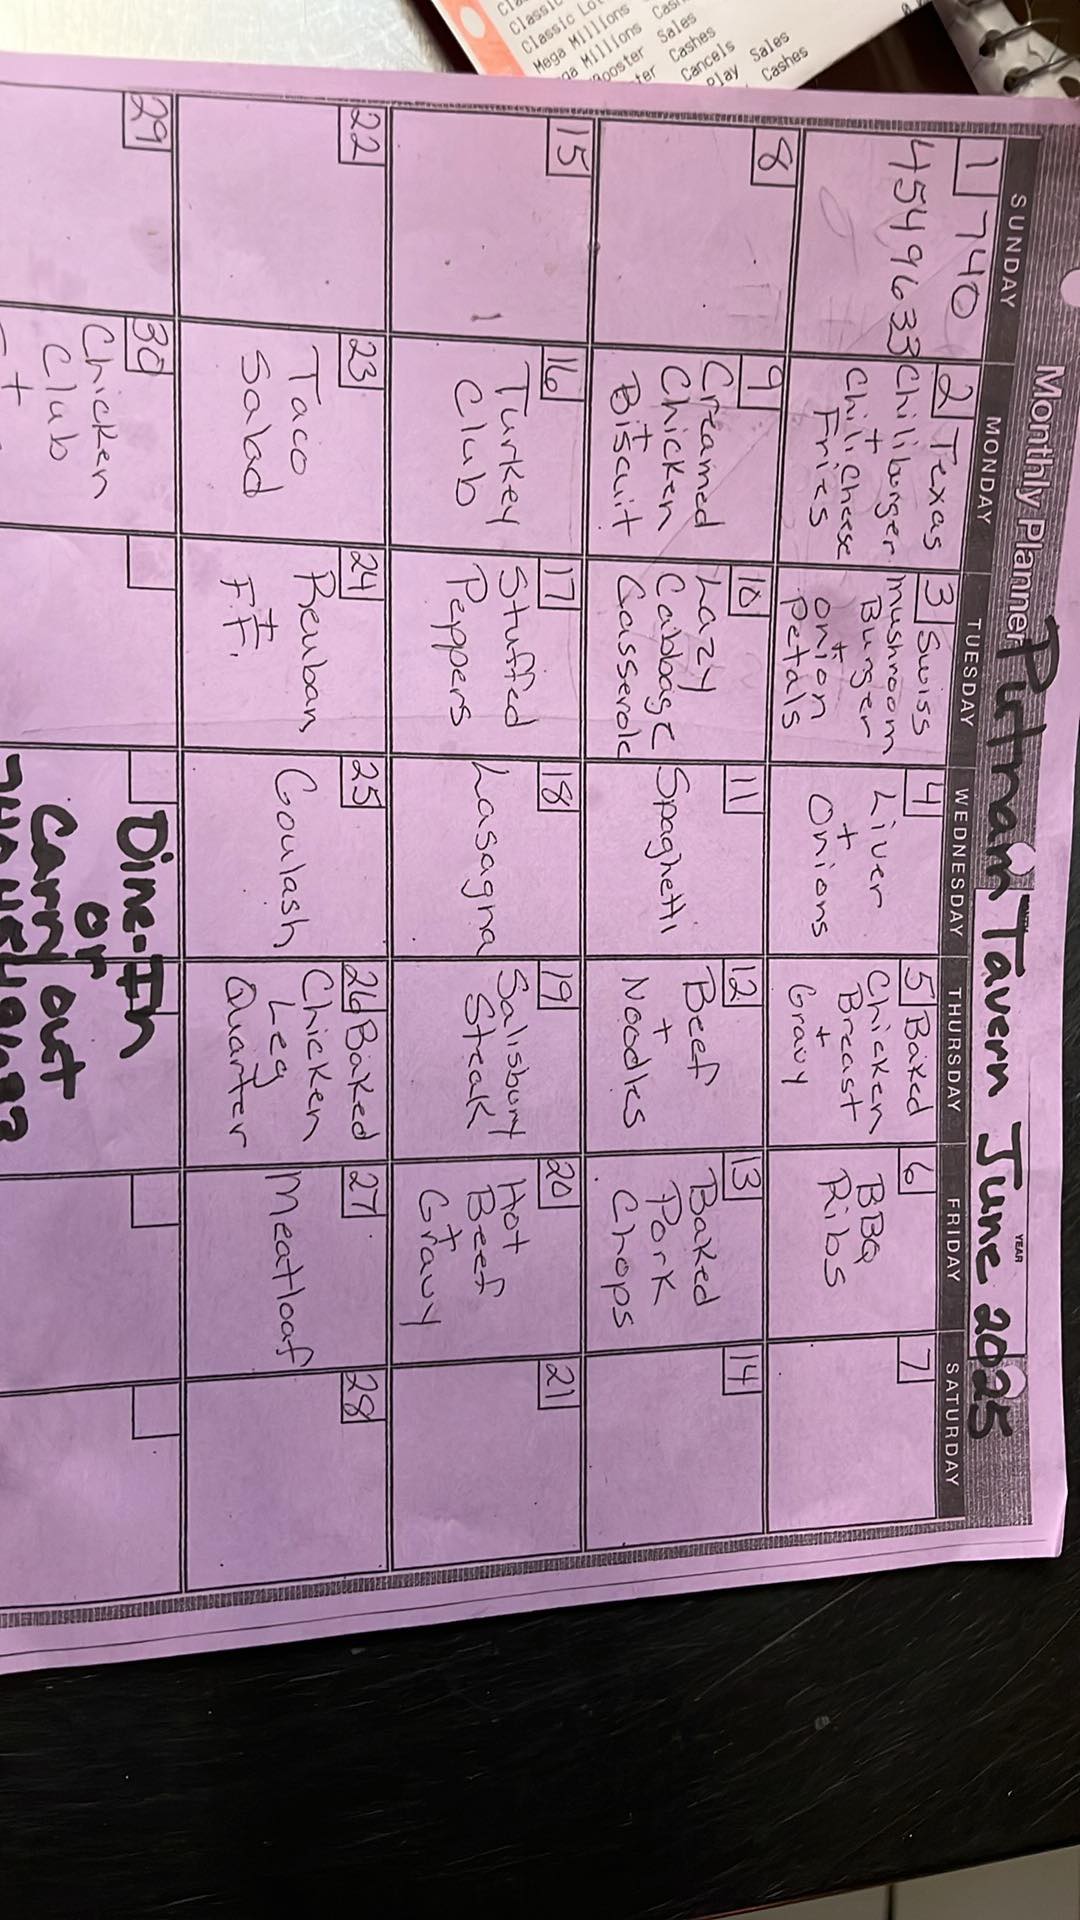 Classic
Classic Lot
Mega Millions
Mega Millions Cash
Booster Sales
Cashes
Cancels
play Sales
Cashes
Monthly Planner
Putnam Tavern June 2025
YEAR
SUNDAY MONDAY TUESDAY WEDNESDAY THURSDAY FRIDAY SATURDAY
1 740
4549633
2 Texas
Chiliburger
+
Chili Cheese
Fries
3 Swiss
mushroom
Burger
+
onion
petals
4
Liver
+
Onions
5 Baked
Chicken
Breast
+
Gravy
6
BBQ
Ribs
7
8
9
Creamed
Chicken
+
Biscuit
10
Lazy
Cabbage
Casserole
11
Spaghetti
12
Beef
+
Noodles
13
Baked
Pork
Chops
14
15
16
Turkey
Club
17
Stuffed
Peppers
18
Lasagna
19
Salisbury
Steak
20
Hot
Beef
+
Gravy
21
22
23
Taco
Salad
24
Reuban
+
F.F.
25
Goulash
26 Baked
Chicken
Leg
Quarter
27
Meatloaf
28
29
30
Chicken
Club
+
Dine-In
or
Carry out